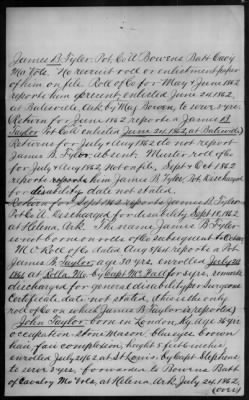 James B. Tyler, Pvt. Co "A" Bowens Batt. Cavy
Mo. Vols. No record roll or enlistment paper
of him on file. Roll of Co for May & June 1862
reports him present, enlisted June 24, 1862,
at Batesville Ark by Maj Bowen, to serve 3 years.
(Return for June 1862 reports a James B.
Taylor Pvt Co A enlisted June 24, 1862, at Batesville)
Returns for July & Aug 1862 do not report
James B. Tyler absent. Muster roll of Co.
for July & Aug 1862, not on file. Sept & Oct 1862
reports him James B. Tyler, Pvt. discharged
for disability date not stated.
Return for Sept 1862 reports James B. Tyler
Pvt Co A. discharged for disability Sept 10, 1862
at Helena, Ark. The name James B. Tyler
not borne on rolls of Co. subsequent
M. O. Roll of Co. dated reports a Pvt
James B. Taylor, age 30 yrs. enrolled July 25
1861 at Rolla Mo. by Capt. for 3 yrs. remarks
discharged for general disability per Surgeons
Certificate date not stated, (this is the only
roll of Co on which James B. Taylor is reported)
John Taylor, born in London, Ky. age 36 yrs
occupation Stone Mason, blue eyes, brown
hair, fair complexion, height 5 feet 6 inches,
enrolled July 21, 1862 at St Louis, by Capt. Stephens
to serve 3 years. forwarded to Bowens Batt
of Cavalry Mo Vols, at Helena Ark July 24, 1862,
(over)